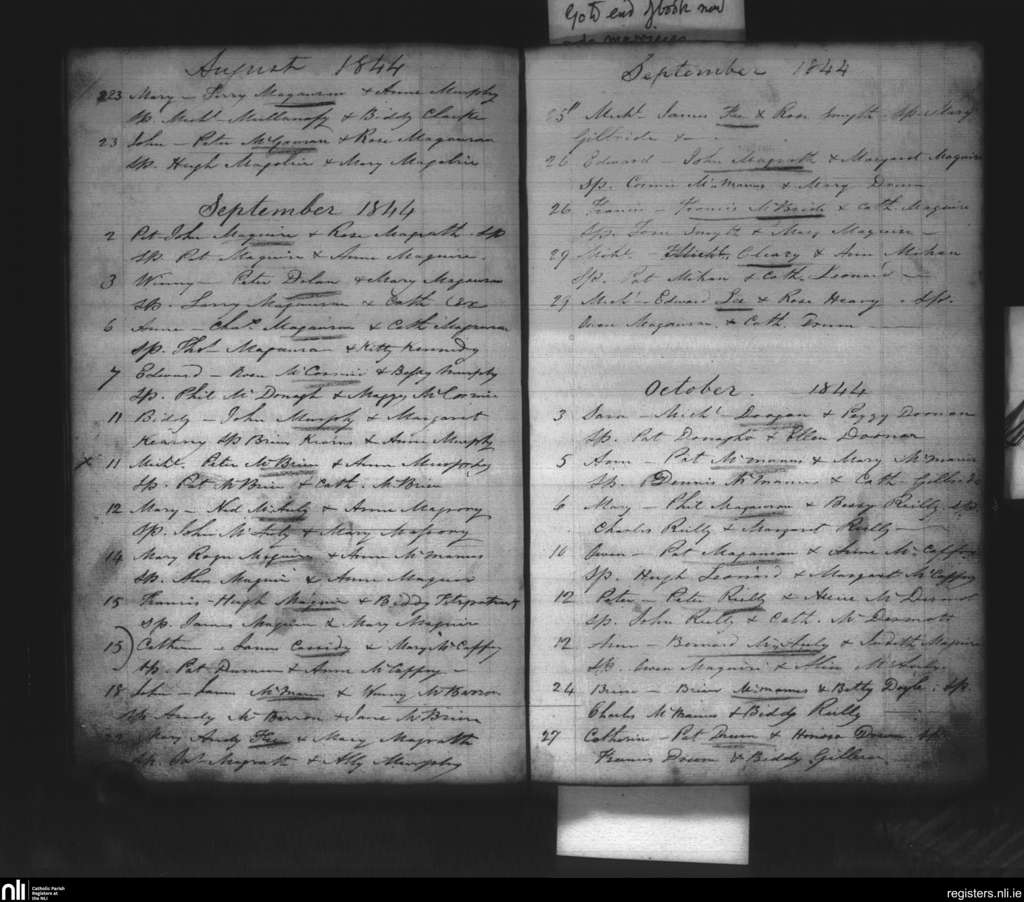 Go to end of book now
August 1844
23 Mary - Terry Magauran & Anne Murphy
Sp. Michl. Mullanaffy & Biddy Clarke
23 John - Peter McGauran & Rose Magauran
Sp. Hugh Magolric & Mary Magolric
September 1844
2 Pat John Maguire & Rose Magrath Sp
Sp. Pat Maguire & Anne Maguire
3 Winny - Peter Dolan & Mary Magauran
Sp. Terry Magauran & Cath
6 Anne - Chas. Magauran & Cath Magauran
Sp. Thos Magauran & Kitty Kennedy
7 Edward - Owen McCormic & Bessy Murphy
Sp. Phil McDonagh & Maggy McCormic
11 Biddy - John Murphy & Margaret
Kearny Sp Brien Kearns & Anne Murphy
x 11 Michl. Peter McBrien & Anne Murphy
Sp. Pat McBrien & Cath. McBrien
12 Mary - Hd McAuly & Anne Magrory
Sp. John McAuly & Mary
14 Mary Roger Maguire & Anne McManus
Sp. Alice Maguire & Anne Maguire
15 Francis - Hugh Maguire & Biddy Fitzpatrick
Sp. James Maguire & Mary Maguire
15) Catherine - James Cassidy & Mary McCaffry
Sp. Pat Durnan & Anne McCaffry -
18 John - James McManus & Henny McBarron
Sp Andy McBarron & Jane McBrien
22 Mary Andy Fee & Mary Magrath
Sp. Pat Magrath & Abby Murphy
September 1844
25 Michl. James Fee & Rose Smyth - Sp. Mary
Gilbride & - .
26 Edward - John Magrath & Margaret Maguire
Sp. Cormic McManus & Mary Drum
26 Francis - Francis McBride & Cath. Maguire
Sp. Tom Smyth & Mary Maguire -
29 Michl. - Cleary & Ann Mihan
Sp. Pat Mihan & Cath. Leonard -
29 Michl - Edward Lee & Rose Heavy . Sps.
Owen Magauran & Cath. Drum
October. 1844
3 Sara - Michl Doogan & Peggy Doonan
Sp. Pat Donagho & Ellen Doonan
5 Ann - Pat McManus & Mary McManus
Sp. Dennis McManus & Cath. Gilbride
6 Mary - Phil Magauran & Bessy Reilly Sp.
Charles Reilly & Margaret Reilly
10 Owen - Pat Magauran & Anne McCaffry
Sp. Hugh Leonard & Margaret McCaffry
12 Peter - Peter Reilly & Anne McDermot
Sp. John Reilly & Cath. McDermott
12 Ann - Bernard McAuly & Judith Maguire
Sp. Owen Maguire & Alice McAuly
24 Brien - Brien McManus & Betty Doyle. Sp.
Charles McManus & Biddy Reilly
27 Catherin - Pat Drum & Honora Drum Sp.
Francis Drum & Biddy Gilleran
nli Catholic Parish Registers at the NLI
registers.nli.ie